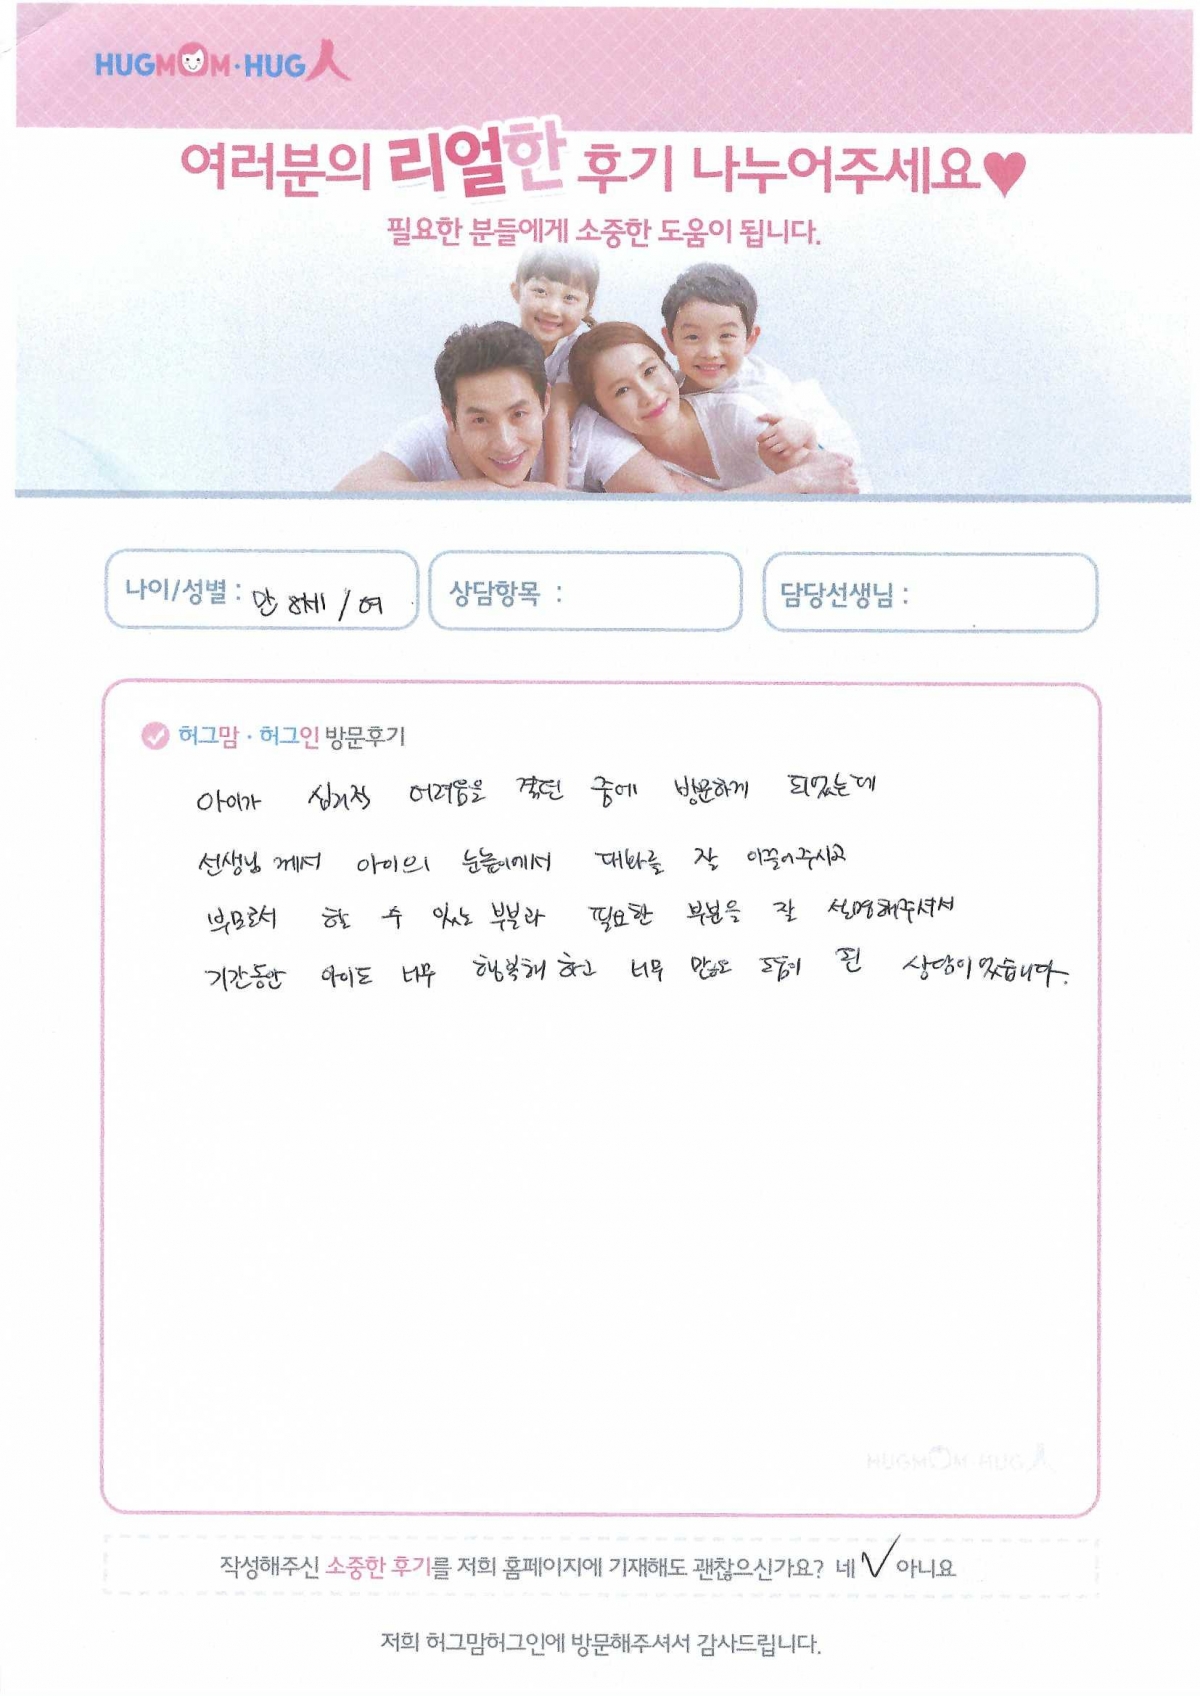 HUGMOM·HUG人
여러분의 리얼한 후기 나누어주세요♥
필요한 분들에게 소중한 도움이 됩니다.
나이/성별 : 만 8세 / 여
상담항목 :
담당선생님 :
허그맘 · 허그인 방문후기
아이가 심리적 어려움을 겪던 중에 방문하게 되었는데
선생님께서 아이의 눈높이에서 대화를 잘 이끌어주시고
부모로서 할 수 있는 부분과 필요한 부분을 잘 설명해주셔서
기간동안 아이도 너무 행복해 하고 너무 많은 도움이 된 상담이었습니다.
HUGMOM·HUG人
작성해주신 소중한 후기를 저희 홈페이지에 기재해도 괜찮으신가요? 네 ✓ 아니요
저희 허그맘허그인에 방문해주셔서 감사드립니다.